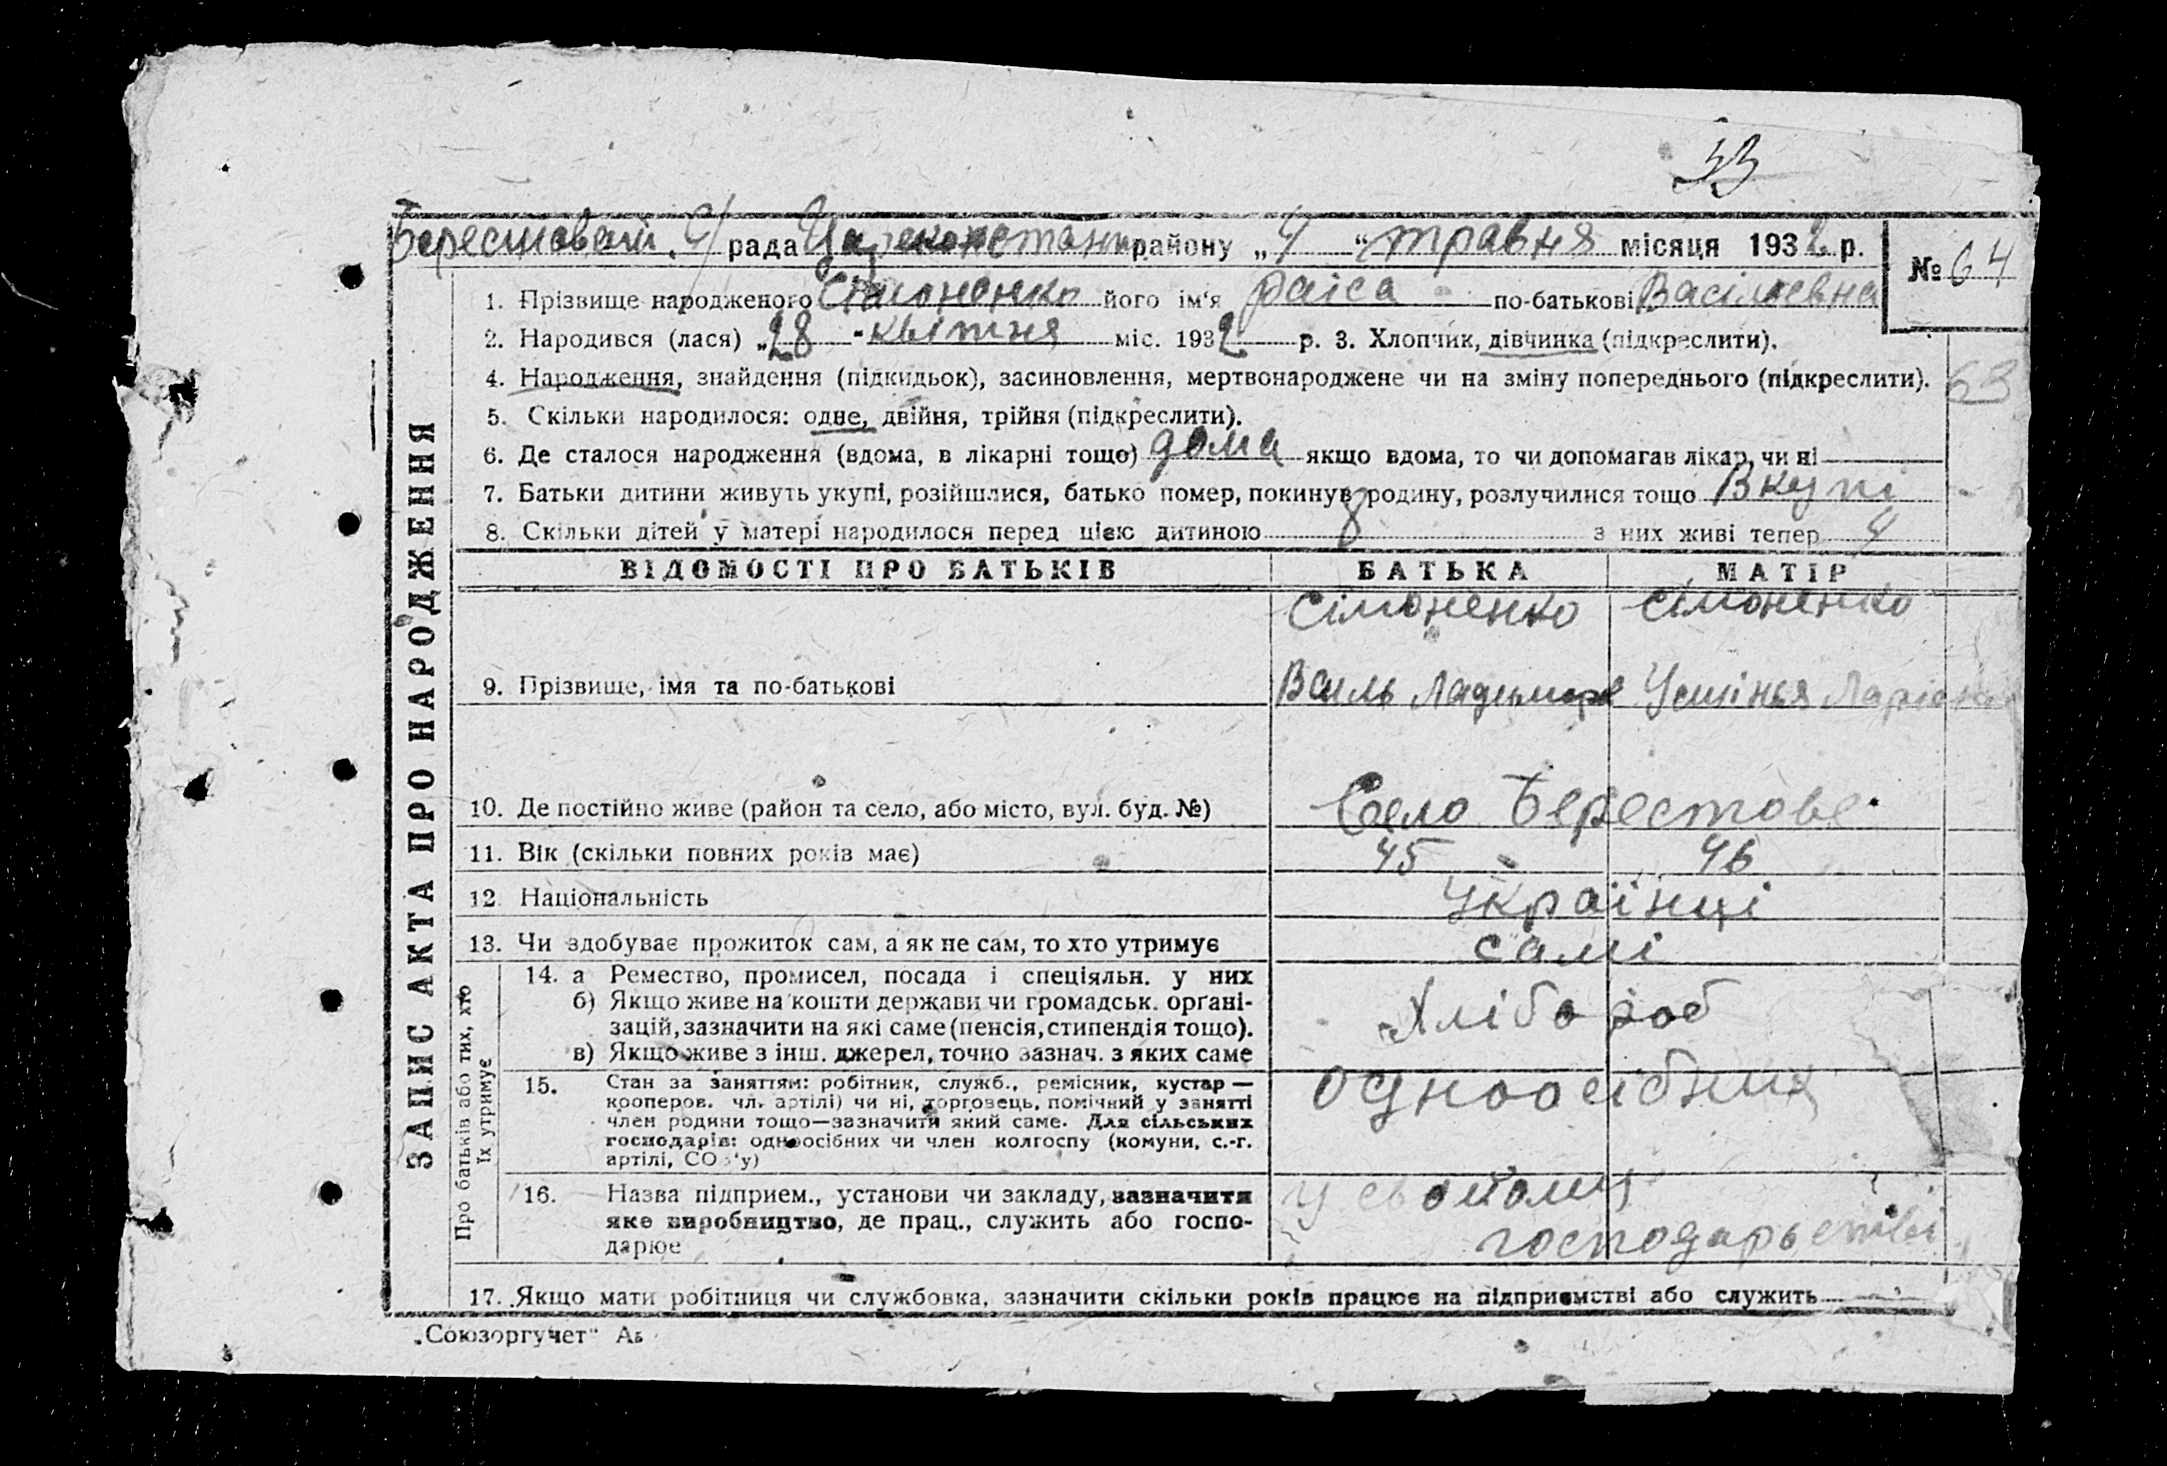 33
Берестовской с/ рада Цареконстант району „4“ травня місяця 1932 р.
№ 64
1. Прізвище народженого Сімоненко його ім'я раіса по-батькові Васільевна
2. Народився (лася) „28 - квітня міс. 1932 р. 3. Хлопчик, дівчинка (підкреслити).
4. Народження, знайдення (підкидьок), засиновлення, мертвонароджене чи на зміну попереднього (підкреслити).
63
5. Скільки народилося: одне, двійня, трійня (підкреслити).
6. Де сталося народження (вдома, в лікарні тощо) дома якщо вдома, то чи допомагав лікар, чи ні
7. Батьки дитини живуть укупі, розійшлися, батько помер, покинув родину, розлучилися тощо Вкупі
8. Скільки дітей у матері народилося перед цією дитиною 8 з них живі тепер 4
ВІДОМОСТІ ПРО БАТЬКІВ БАТЬКА МАТІР
Сімоненко Сімоненко
9. Прізвище, імя та по-батькові Василь Ладимиров Устінья Ларіон
10. Де постійно живе (район та село, або місто, вул. буд. №) Село Берестове.
11. Вік (скільки повних років має) 45 46
12. Національність Українці
13. Чи здобуває прожиток сам, а як не сам, то хто утримує самі
ЗАПИС АКТА ПРО НАРОДЖЕННЯ
Про батьків або тих, хто
їх утримує
14. а Ремество, промисел, посада і спеціяльн. у них
б) Якщо живе на кошти держави чи громадськ. органі-
зацій, зазначити на які саме (пенсія, стипендія тощо).
в) Якщо живе з інш. джерел, точно зазнач. з яких саме
Хлібороб
15. Стан за заняттям: робітник, служб., ремісник, кустар —
кооперов. чл. артілі) чи ні, торговець, помічний у занятті
член родини тощо—зазначити який саме. Для сільських
господарів: одноосібних чи член колгоспу (комуни, с.-г.
артілі, СО 'у)
одноосібник
16. Назва підприєм., установи чи закладу, зазначити
яке виробництво, де прац., служить або госпо-
дарює
у свойому
господарьстві
17. Якщо мати робітниця чи службовка, зазначити скільки років працює на підприємстві або служить
„Союзоргучет“ Ав